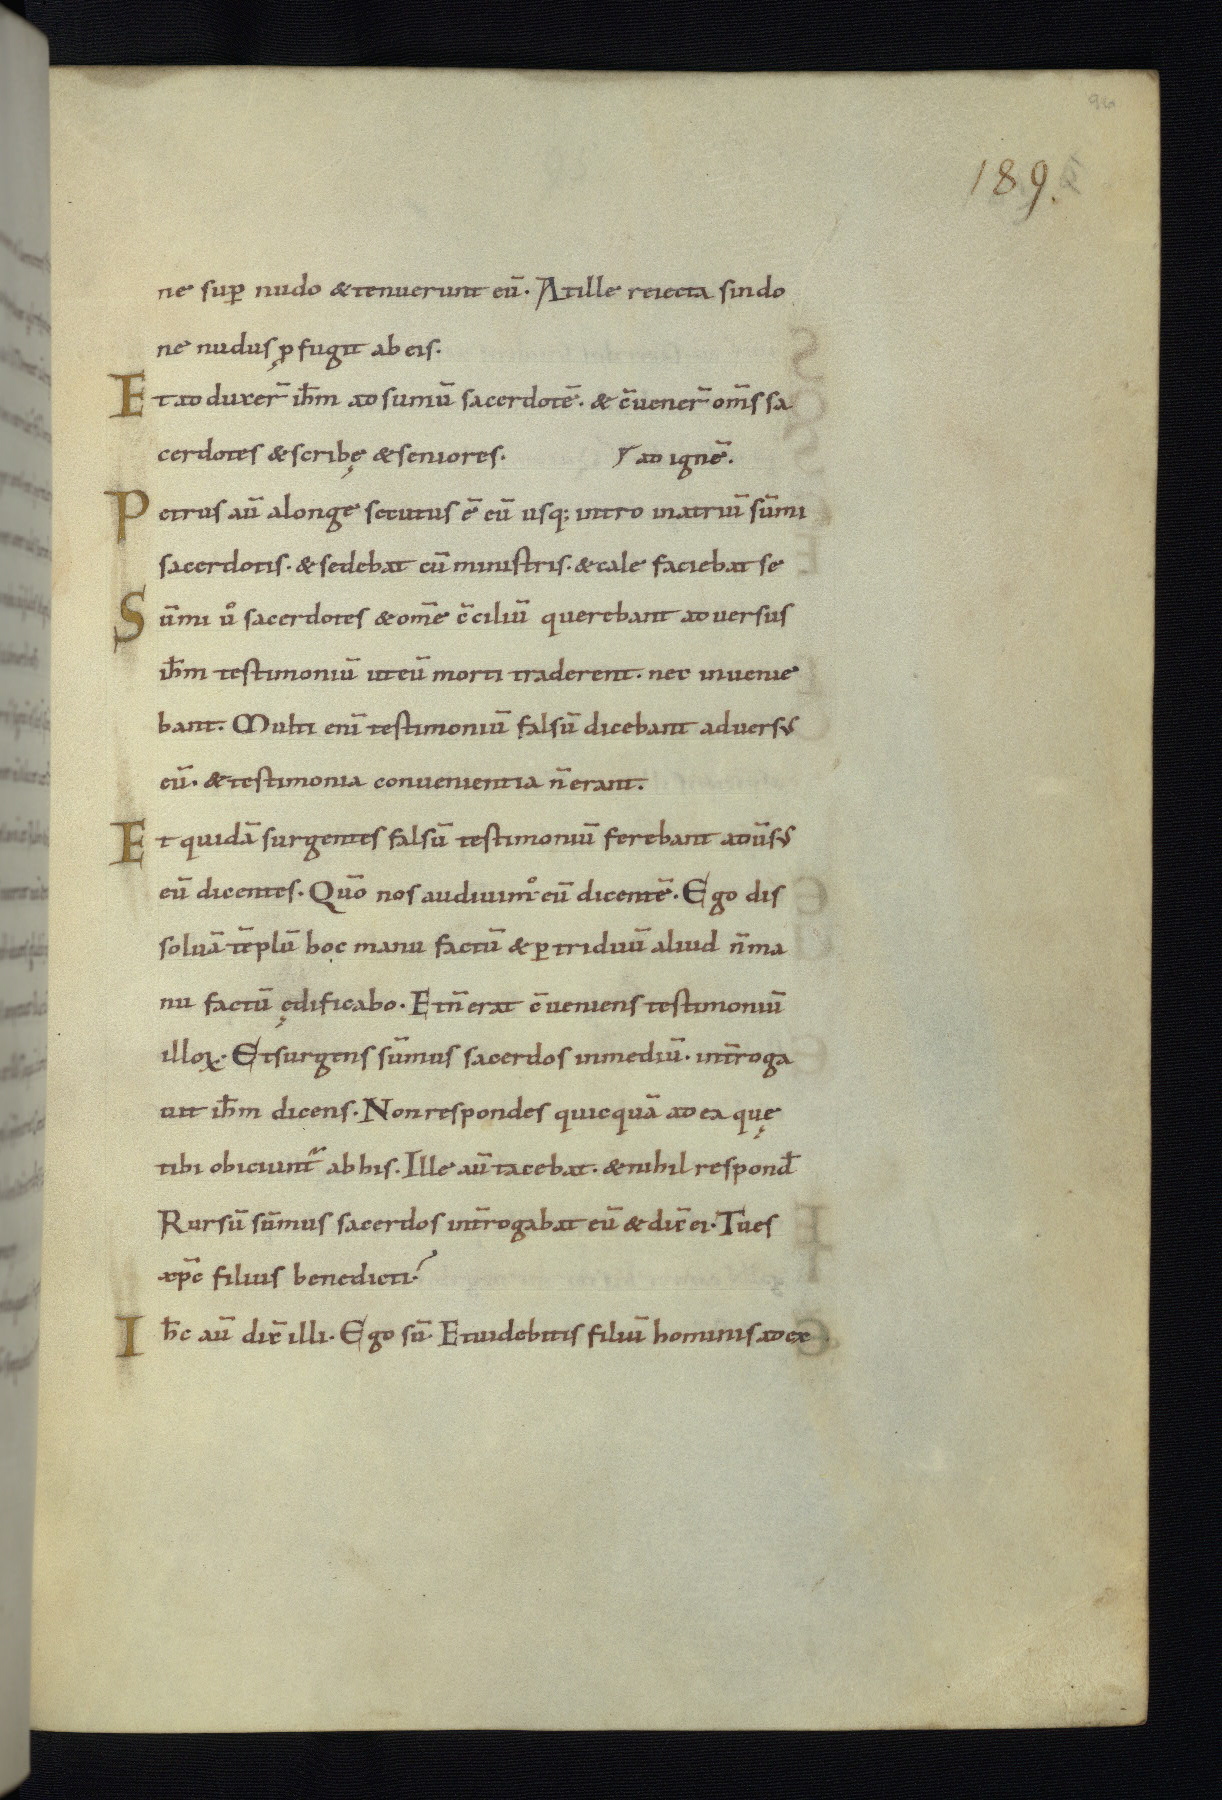 189.
ne sup̄ nudo & tenuerunt eū. At ille reiecta sindo
ne nudus ꝓfugit ab eis.
Et adduxer̄ ih̄m ad sumū sacerdotē. & c̄uener̄ om̄s sa
cerdotes & scribę & seniores. ad ignē.
Petrus aū a longe secutus ē eū usq; intro in atriū sūmi
sacerdotis. & sedebat cū ministris. & cale faciebat se
Sūmi ů sacerdotes & om̄e c̄ciliū querebant aduersus
ih̄m testimoniū ut eū morti traderent. nec inuenie
bant. Multi eni̅ testimoniū falsū dicebant aduersus
eū. & testimonia conuenientia n̄ erant.
Et quidā surgentes falsū testimoniū ferebant adūsus
eū dicentes. Quō nos audiuim᷒ eū dicentē. Ego dis
soluā tēplū hoc manu factū & ꝑ triduū aliud n̄ ma
nu factū ędificabo. Et n̄ erat c̄ueniens testimoniū
illoꝝ. Et surgens sūmus sacerdos in mediū. int̄roga
uit ih̄m dicens. Non respondes quicquā ad ea quę
tibi obiciunt᷑ ab his. Ille aū tacebat. & nihil respond̄
Rursū sūmus sacerdos int̄rogabat eū & dix̄ ei. Tu es
xp̄c filius benedicti?
Ih̄c aū dix̄ illi. Ego sū. Et uidebitis filiū hominis ad ex